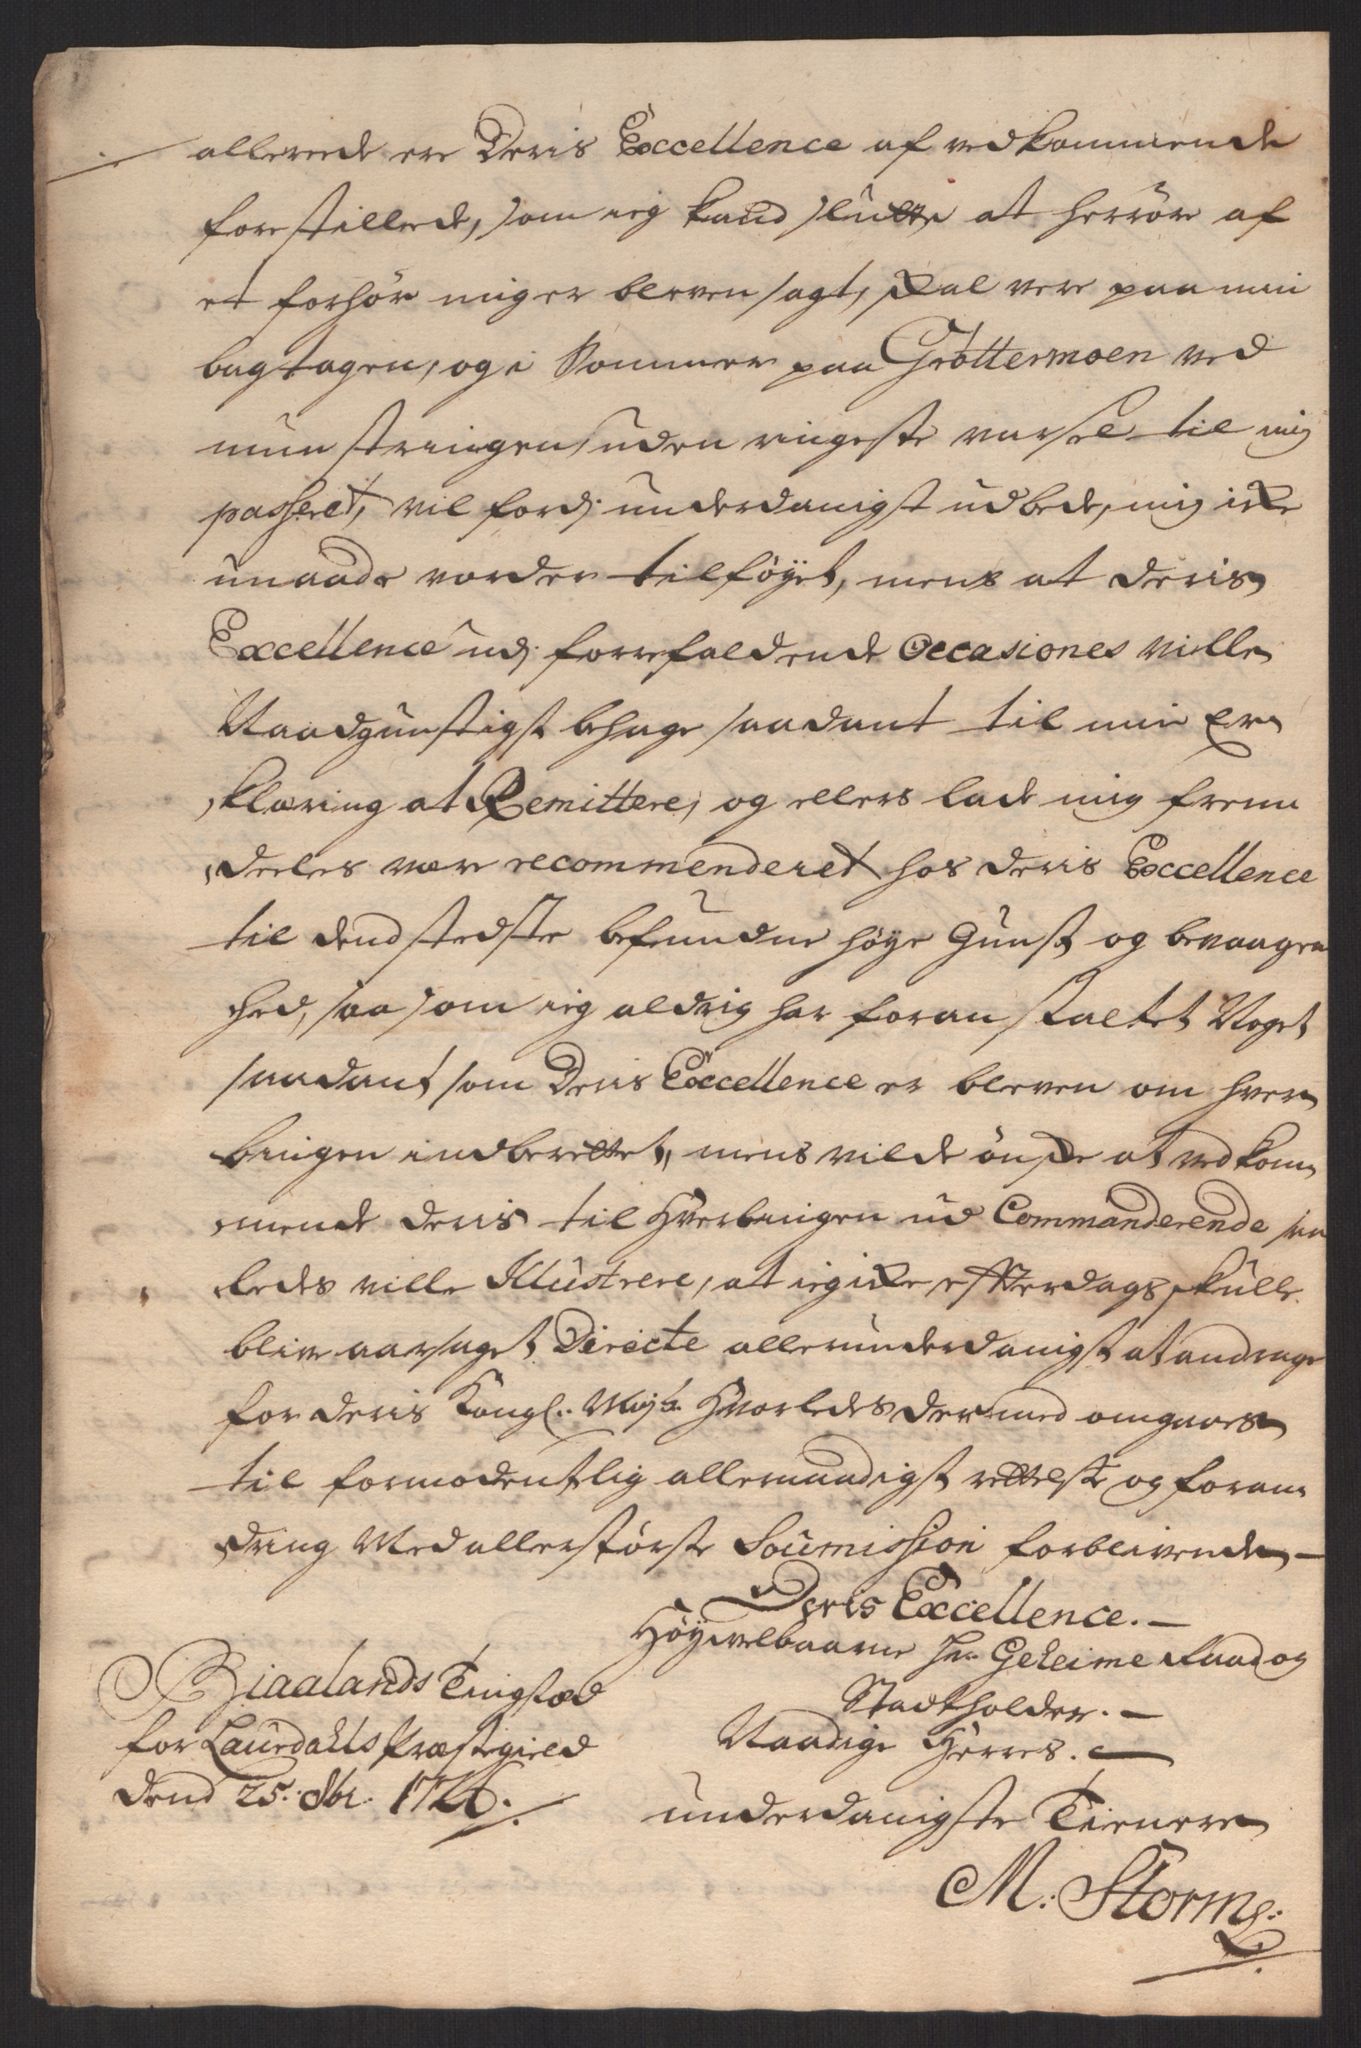 allerede ere Deris Excellence af vedkommende
forestillede, som ieg kand slutte at herröre af
et forhör mig er bleven sagt, skal vere paa min
bagtagen, og i Sommer paa Gröttermoen ved
munstringen, uden ringeste varsel til mig
passeret, vil fordj underdanigst udbede, mig icke
unaade vorder tilföyet, mens at deris
Excellence udj forrefaldende occasiones ville
Naadgunstigst behage saadant til min Er„
„klæring at Remittere, og ellers lade mig frem„
„deeles være recommenderet hos deris Excellence
til dend stedste befundne höye Gunst og bevaagen„
„hed, saa som ieg aldrig har foranstaltet Noget
saadant som Deris Excellence er bleven om hver„
bingen indberettet, mens vilde önske at vedkom„
„mende deris til Hverbingen ud Commanderende saa
ledes ville Illustrere, at ieg icke efterdags skulle
blive aarsaget Directe allerunderdanigst at andrage
for deris Kongl: Mayts. Hvorledes dermed omgaaes
til formodentlig allernaadigst rettelse og foran„
dring Med allerstörste Soumission forblivende –
Deris Excellence. –
Höyvelbaarne Hr. Geheime Raad og
Stadtholder. –
Naadige Herres. –
underdanigste Tienere
M: Storm
Biaalands Tingsted
for Laurdahls Præstegield
dend 25. 8br. 1726.